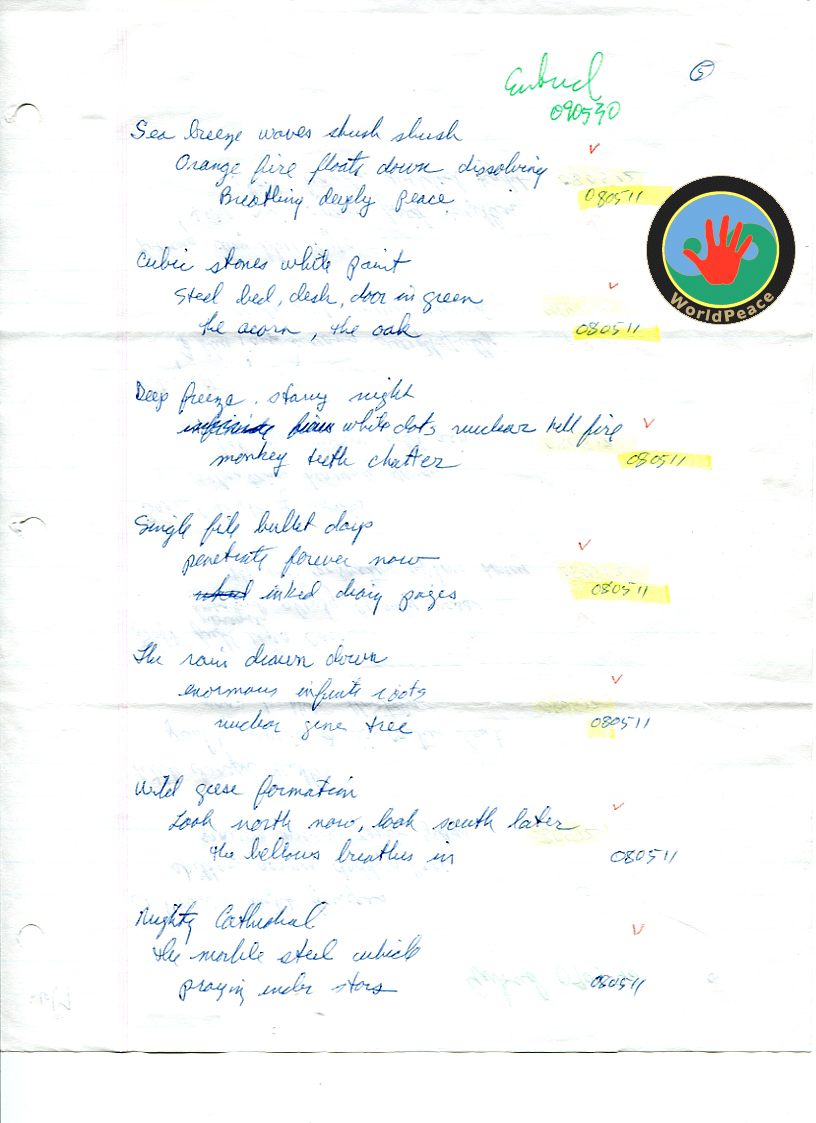 5
090530
Sea breeze waves shush shush
Orange fire floats down dissolving
Breathing deeply peace
080511
WorldPeace
Cubic stones white paint
Steel bed, desk, door in green
the acorn, the oak
080511
Deep freeze. starry night
white dots nuclear hell fire
monkey teeth chatter
080511
Single file bullet days
penetrate forever now
inked diary pages
080511
The rain drawn down
enormous infinite roots
nuclear gene tree
080511
Wild geese formation
Look north now, look south later
the bellows breathes in
080511
Mighty Cathedral
the marble steel cubicle
praying under stars
080511